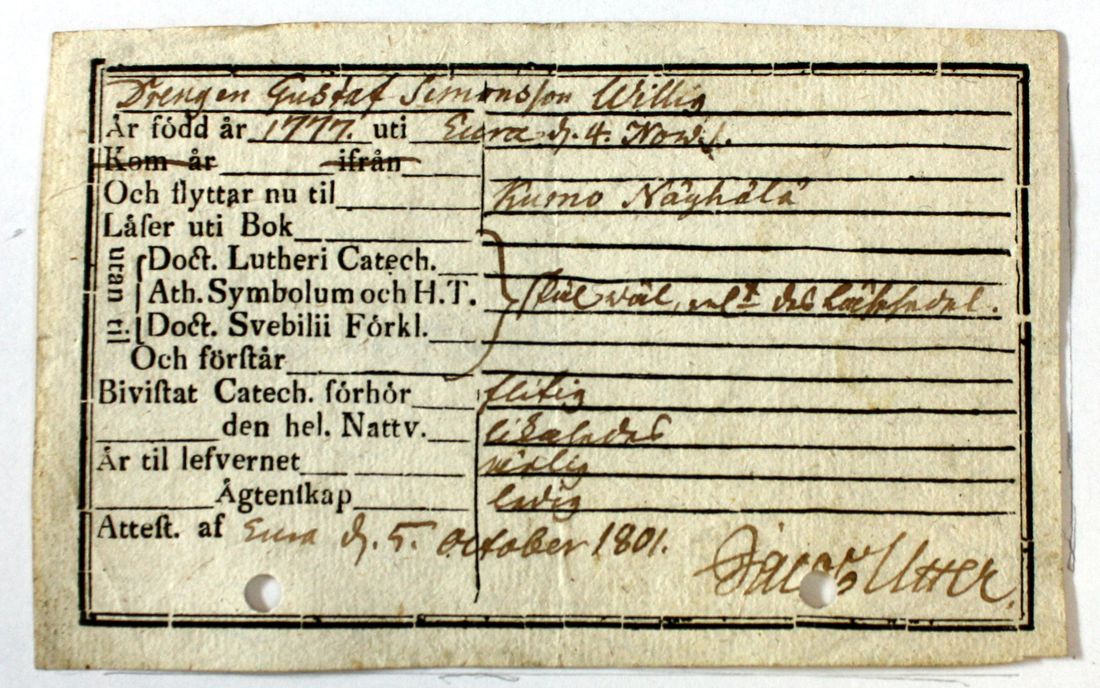 Drengen Gustaf Simonsson Willig
Är född år 1777. uti Eura d. 4. Nov.
Kom år ifrån
Och flyttar nu til Kumo Näyhälä
Läſer uti Bok
utan til.
Doct. Lutheri Catech.
Ath. Symbolum och H. T. wäl, enl
Doct. Svebilii Förkl.
Och förſtår
Biviſtat Catech. förhör flitig
den hel. Nattv. likaledes
Är til lefvernet
Ägtenſkap ledig
Atteſt. af Eura d. 5. October 1801.
Jacob Utter.